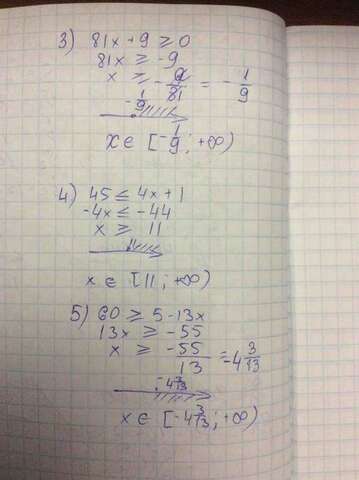 3) 81x + 9 ≥ 0
81x ≥ -9
x ≥ -9/81 = -1/9
-1/9
x ∈ [-1/9; +∞)
4) 45 ≤ 4x + 1
-4x ≤ -44
x ≥ 11
11
x ∈ [11; +∞)
5) 60 ≥ 5 - 13x
13x ≥ -55
x ≥ -55/13 = -4 3/13
-4 3/13
x ∈ [-4 3/13; +∞)